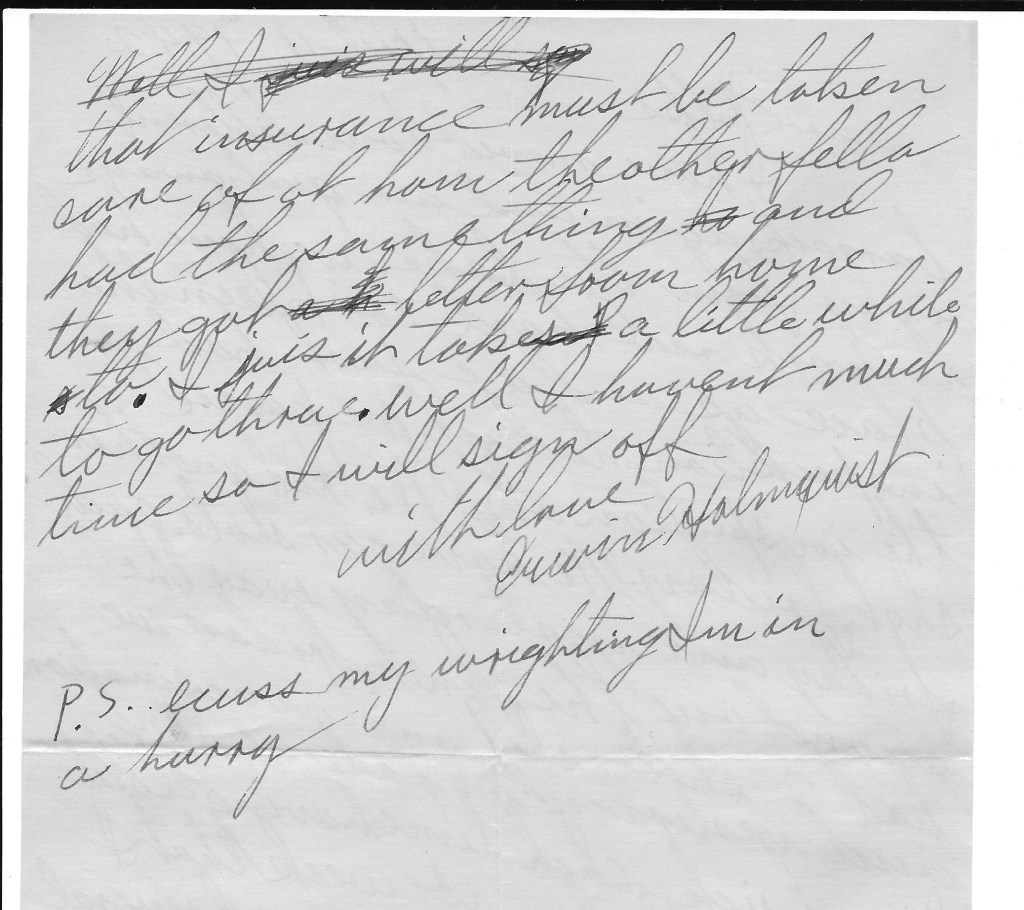 Well I juis will sy
that insurance must be taken
care of at hom the other fella
had the same thing and
they got a letter from home
to. I juis it takes a little while
to go thrue. well I havent much
time so I will sign off
with love
Erwin Holmquist
P.S.. ecuss my wrighting I'm in
a hurry